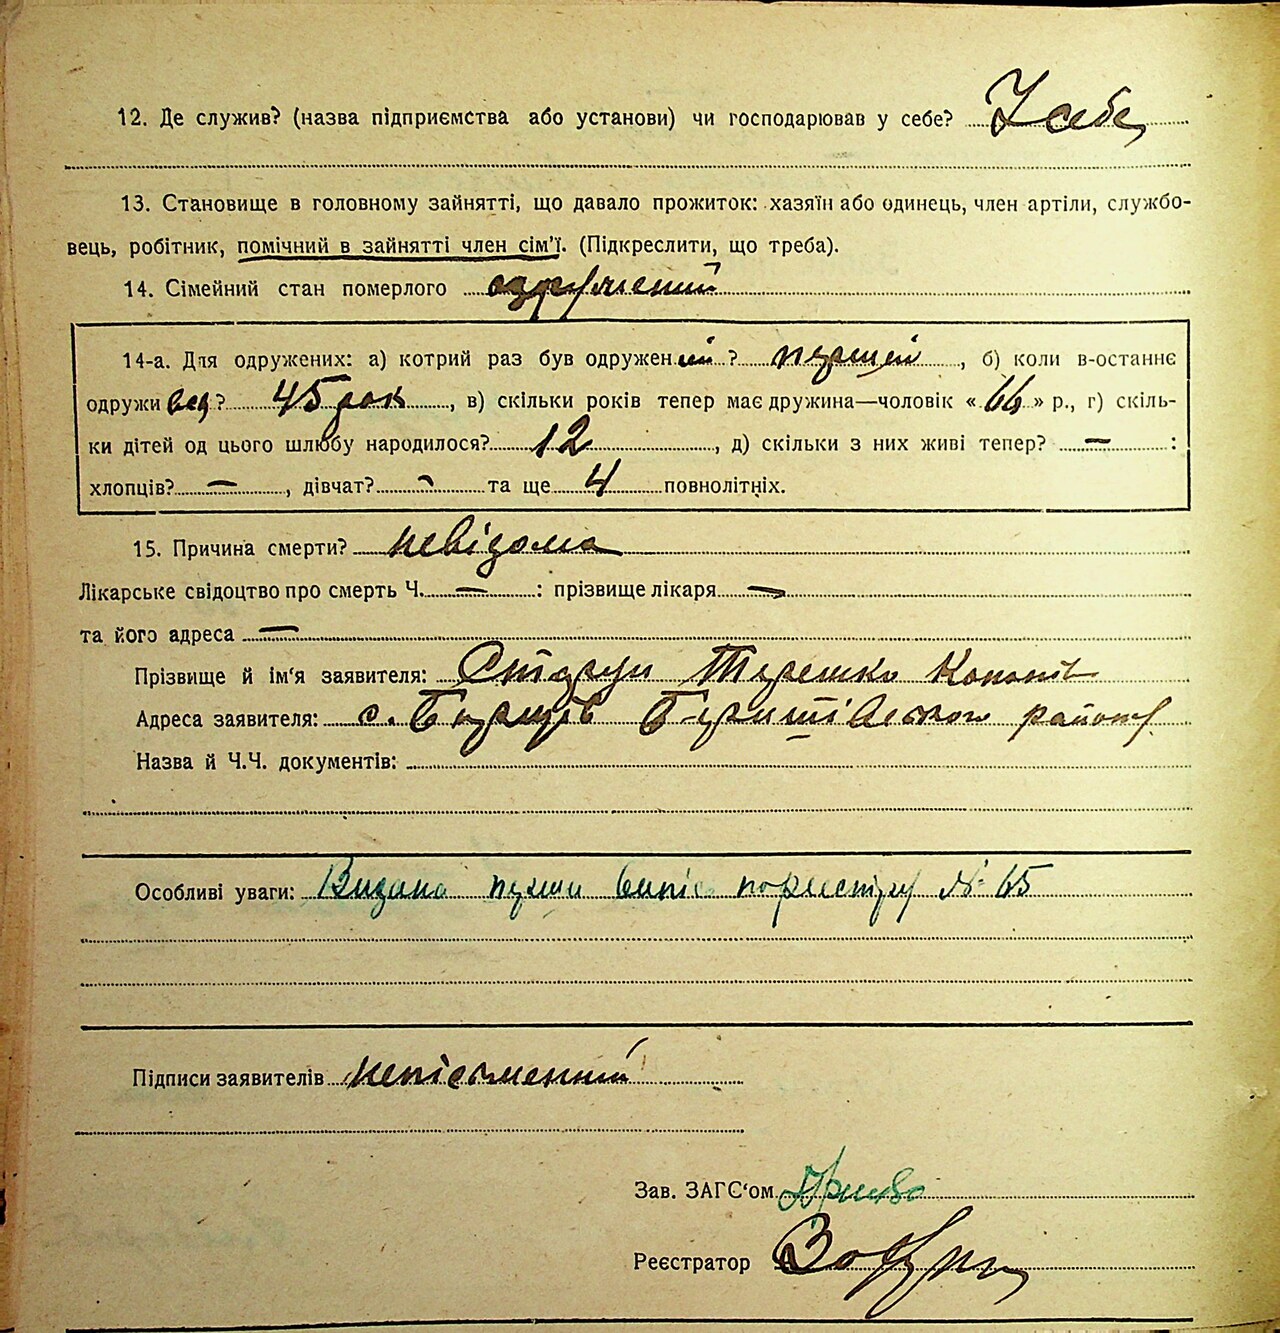 12. Де служив? (назва підприємства або установи) чи господарював у себе? У себе
13. Становище в головному зайнятті, що давало прожиток: хазяїн або одинець, член артіли, службо-
вець, робітник, помічний в зайнятті член сім'ї. (Підкреслити, що треба).
14. Сімейний стан померлого одружений
14-а. Для одружених: а) котрий раз був одружен ий ? перший, б) коли в-останнє
одружи вся ? 45 рок, в) скільки років тепер має дружина—чоловік « 66 » р., г) скіль-
ки дітей од цього шлюбу народилося? 12, д) скільки з них живі тепер? — :
хлопців? —, дівчат? - та ще 4 повнолітніх.
15. Причина смерти? невідома
Лікарське свідоцтво про смерть Ч. — : прізвище лікаря —
та його адреса —
Прізвище й ім'я заявителя: Терешко
Адреса заявителя: с. району
Назва й Ч.Ч. документів:
Особливі уваги: Видана випис по реєстру № 65
Підписи заявителів неписьменний
Зав. ЗАГС'ом
Реєстратор